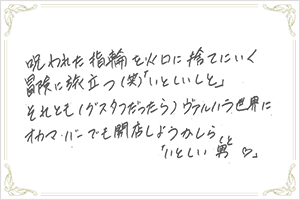 呪われた指輪を火口に捨てにいく
冒険に旅立つ(笑)「いとしいしと」
それとも(グスタフだったら)ヴァルハラ世界に
オカマ・バーでも開店しようかしら
「いとしい男♡」
しと